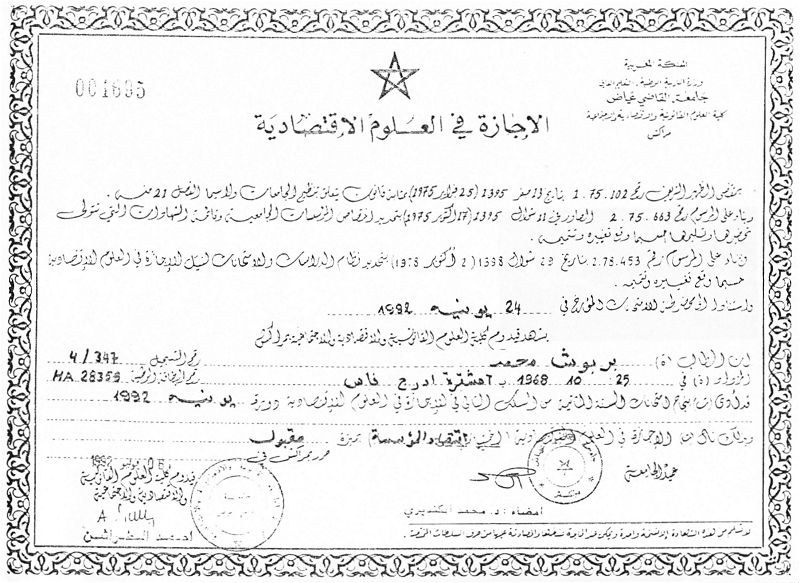 المملكة المغربية
وزارة التربية الوطنية، التعليم العالي
جامعة القاضي عياض
كلية العلوم القانونية والاقتصادية والاجتماعية
مراكش
001695
الإجازة في العلوم الاقتصادية
بمقتضى الظهير الشريف رقم 1.75.102 بتاريخ 13 صفر 1395 (25 فبراير 1975) بمثابة قانون يتعلق بتنظيم الجامعات ولاسيما الفصل 21 منه.
وبناء على المرسوم رقم 2.75.663 الصادر في 11 شوال 1395 (17 أكتوبر 1975) بتحديد اختصاص المؤسسات الجامعية وقائمة الشهادات التي تتولى
تحضيرها وتسليمها حسبما وقع تغييره وتتميمه.
وبناء على المرسوم رقم 2.78.453 بتاريخ 29 شوال 1398 (2 أكتوبر 1978) بتحديد نظام الدراسات والامتحانات لنيل الإجازة في العلوم الاقتصادية
حسبما وقع تغييره وتتميمه.
واستنادا الى محضر لجنة الامتحانات المؤرخ في 24 يونيه 1992
يشهد قيدوم كلية العلوم القانونية والاقتصادية والاجتماعية بمراكش
ان الطالب (ة) بربوش محمد رقم التسجيل 4/347
المزداد (ة) في 25 10 1968 بـ امشترة ادرج فاس رقم البطاقة الوطنية MA 28359
قد أدى (ت) بنجاح امتحانات السنة الثانية من السلك الثاني للإجازة في العلوم الاقتصادية دورة يونيه 1992
وبذلك نال شهادة الإجازة في العلوم الاقتصادية (الخيار) اقتصاد المؤسسة بميزة مقبول
حرر بمراكش في
1992
قيدوم كلية العلوم القانونية
والاقتصادية والاجتماعية
عميد الجامعة
امضاء: د. محمد
لا تسلم من هذه الشهادة إلا نسخة واحدة ويمكن